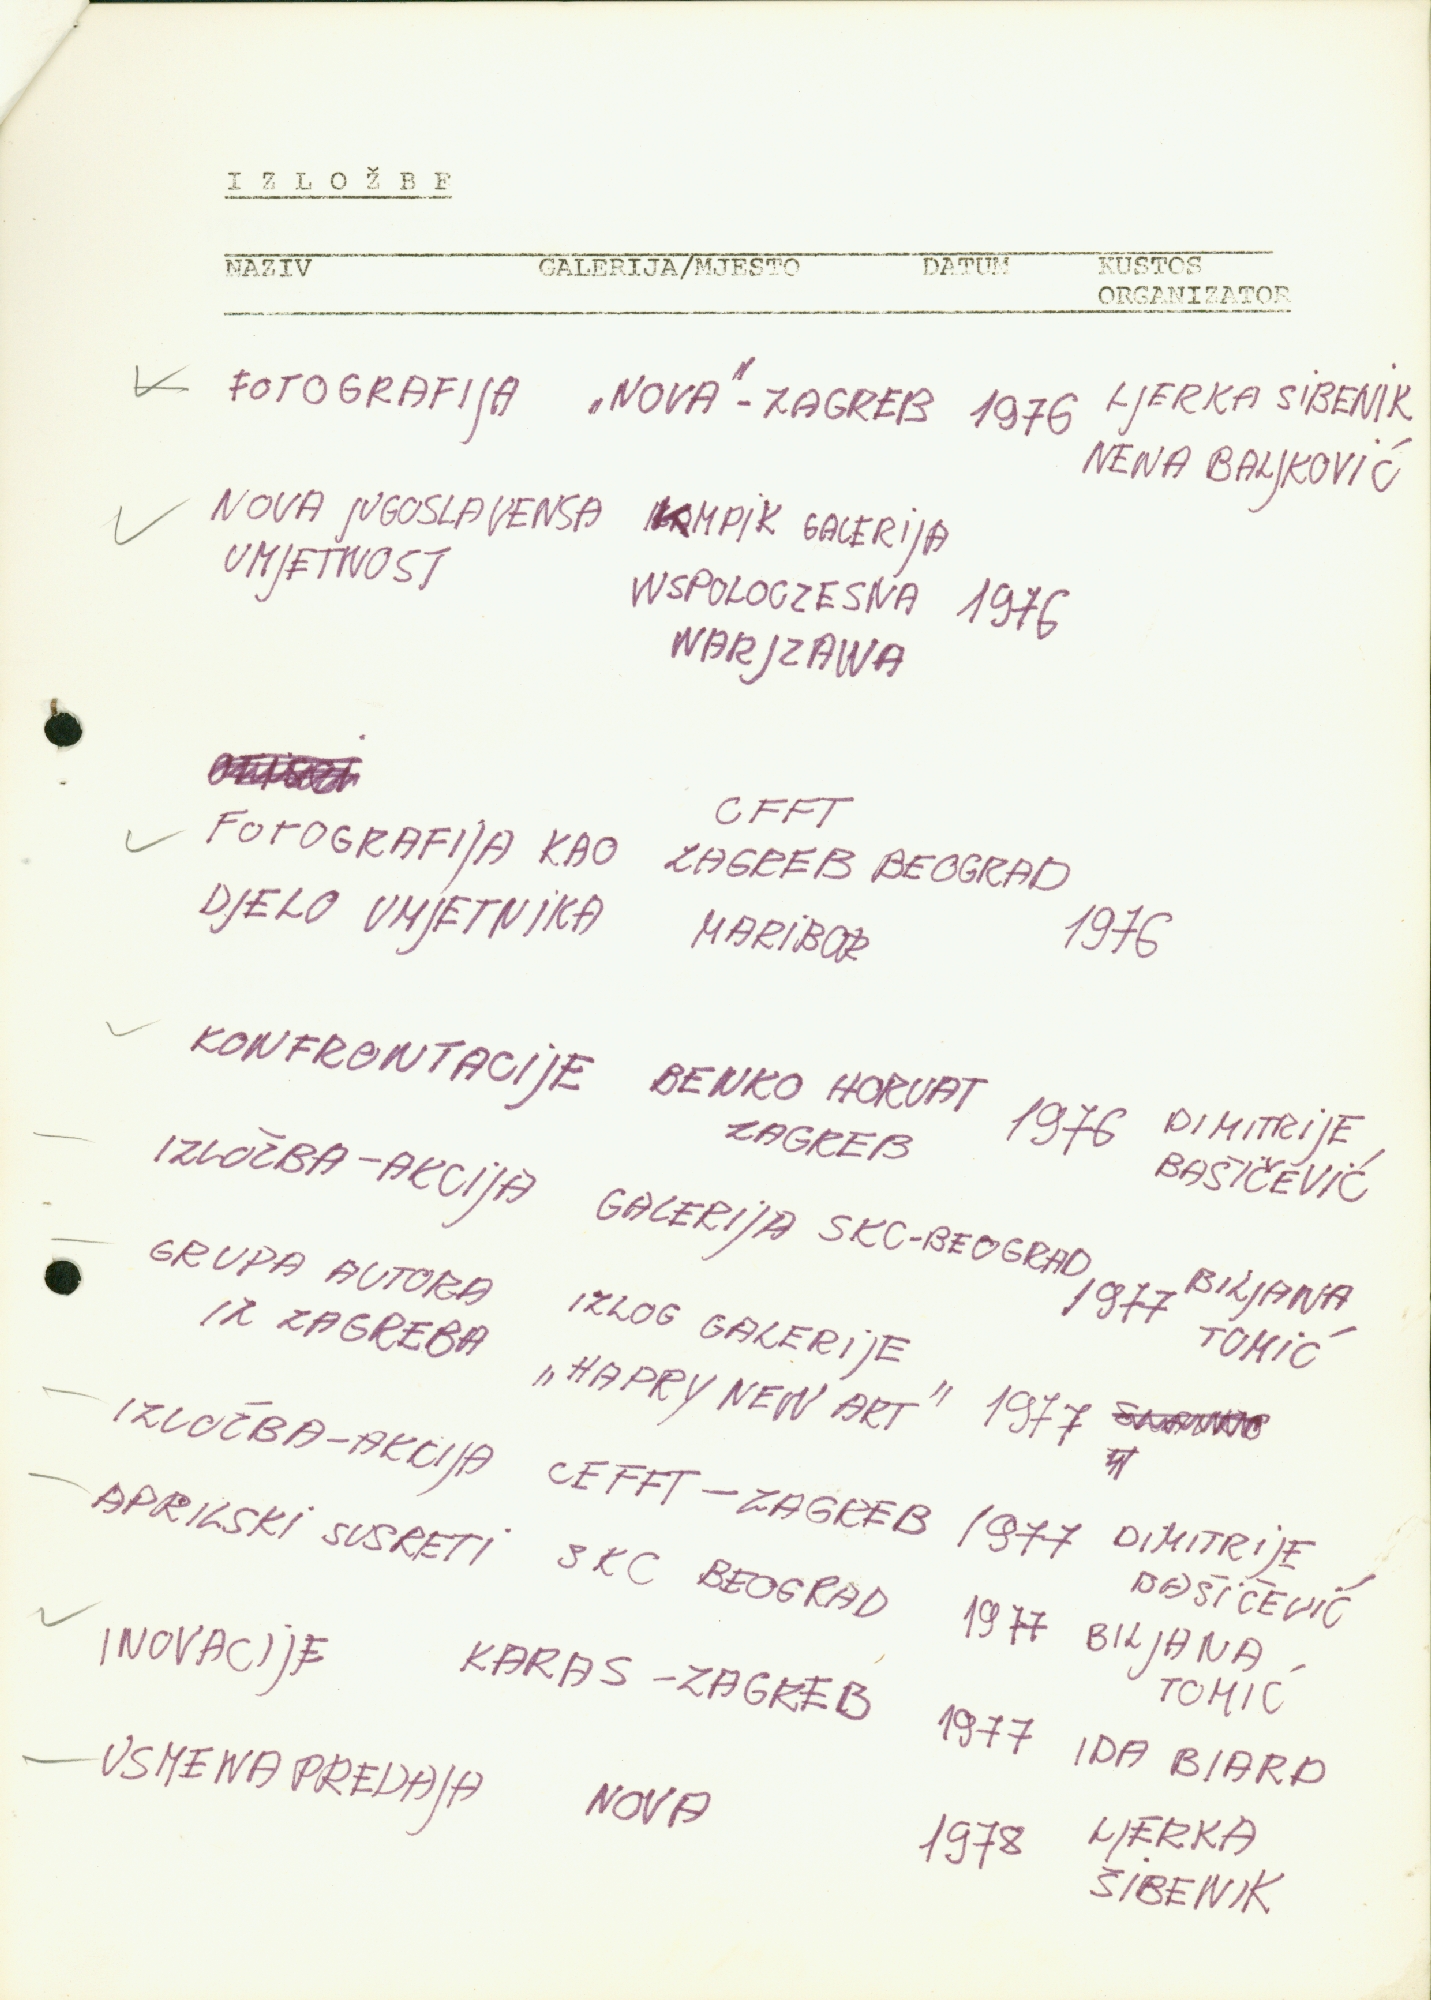 I Z L O Ž B E
NAZIV GALERIJA/MJESTO DATUM KUSTOS
ORGANIZATOR
FOTOGRAFIJA „NOVA" - ZAGREB 1976 LJERKA SIBENIK
NENA BALJKOVIĆ
NOVA JUGOSLAVENSA MPIK GALERIJA
UMJETNOST
WSPOLOCZESNA 1976
WARJZAWA
CFFT
FOTOGRAFIJA KAO ZAGREB BEOGRAD
DJELO UMJETNIKA MARIBOR 1976
KONFRONTACIJE BENKO HORVAT 1976 DIMITRIJE
ZAGREB BAŠIČEVIĆ
IZLOŽBA-AKCIJA GALERIJA SKC-BEOGRAD 1977 BILJANA
TOMIĆ
GRUPA AUTORA IZLOG GALERIJE
IZ ZAGREBA „HAPRY NEW ART" 1977
IZLOŽBA-AKCIJA CEFFT - ZAGREB 1977 DIMITRIJE
BAŠIČEVIĆ
APRILSKI SUSRETI SKC BEOGRAD 1977 BILJANA
TOMIĆ
INOVACIJE KARAS - ZAGREB 1977 IDA BIARD
USMENA PREDAJA NOVA 1978 LJERKA
ŠIBENIK